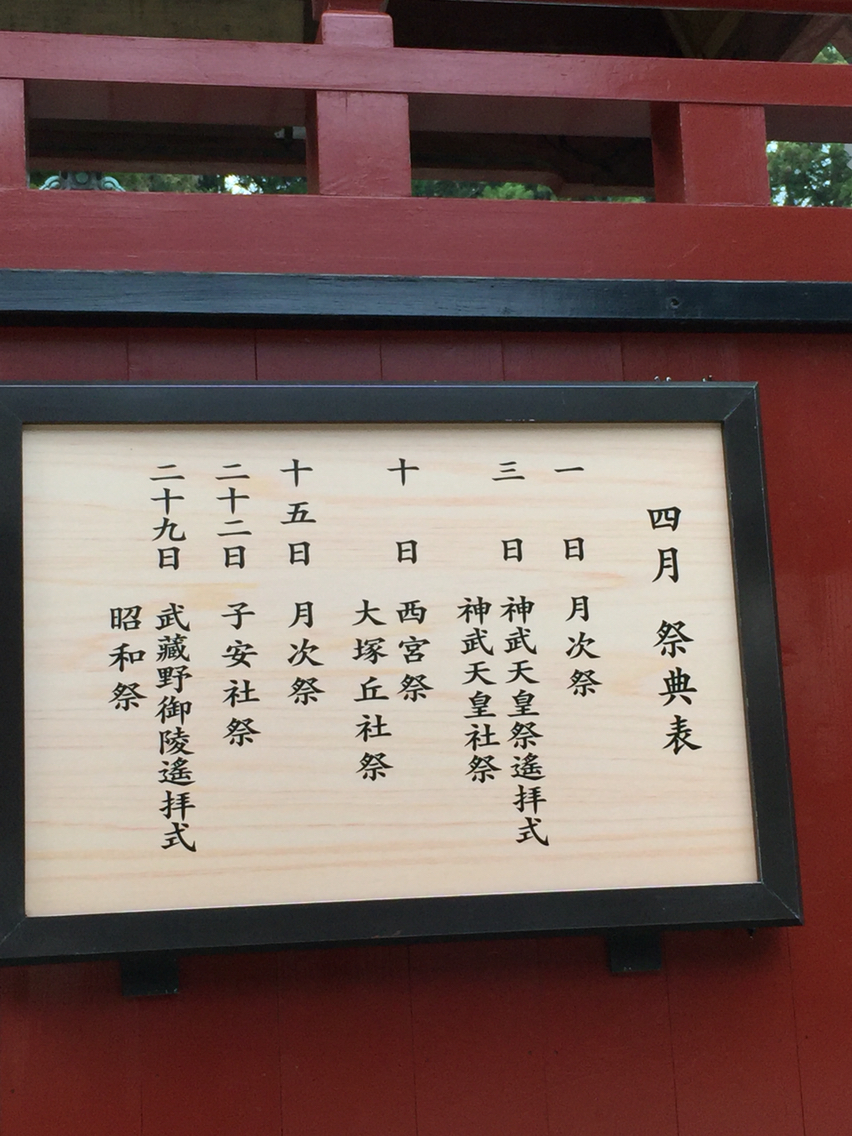 四月 祭典表
一日 月次祭
三日 神武天皇祭遙拝式
神武天皇社祭
十日 西宮祭
大塚丘社祭
十五日 月次祭
二十二日 子安社祭
二十九日 武藏野御陵遙拝式
昭和祭